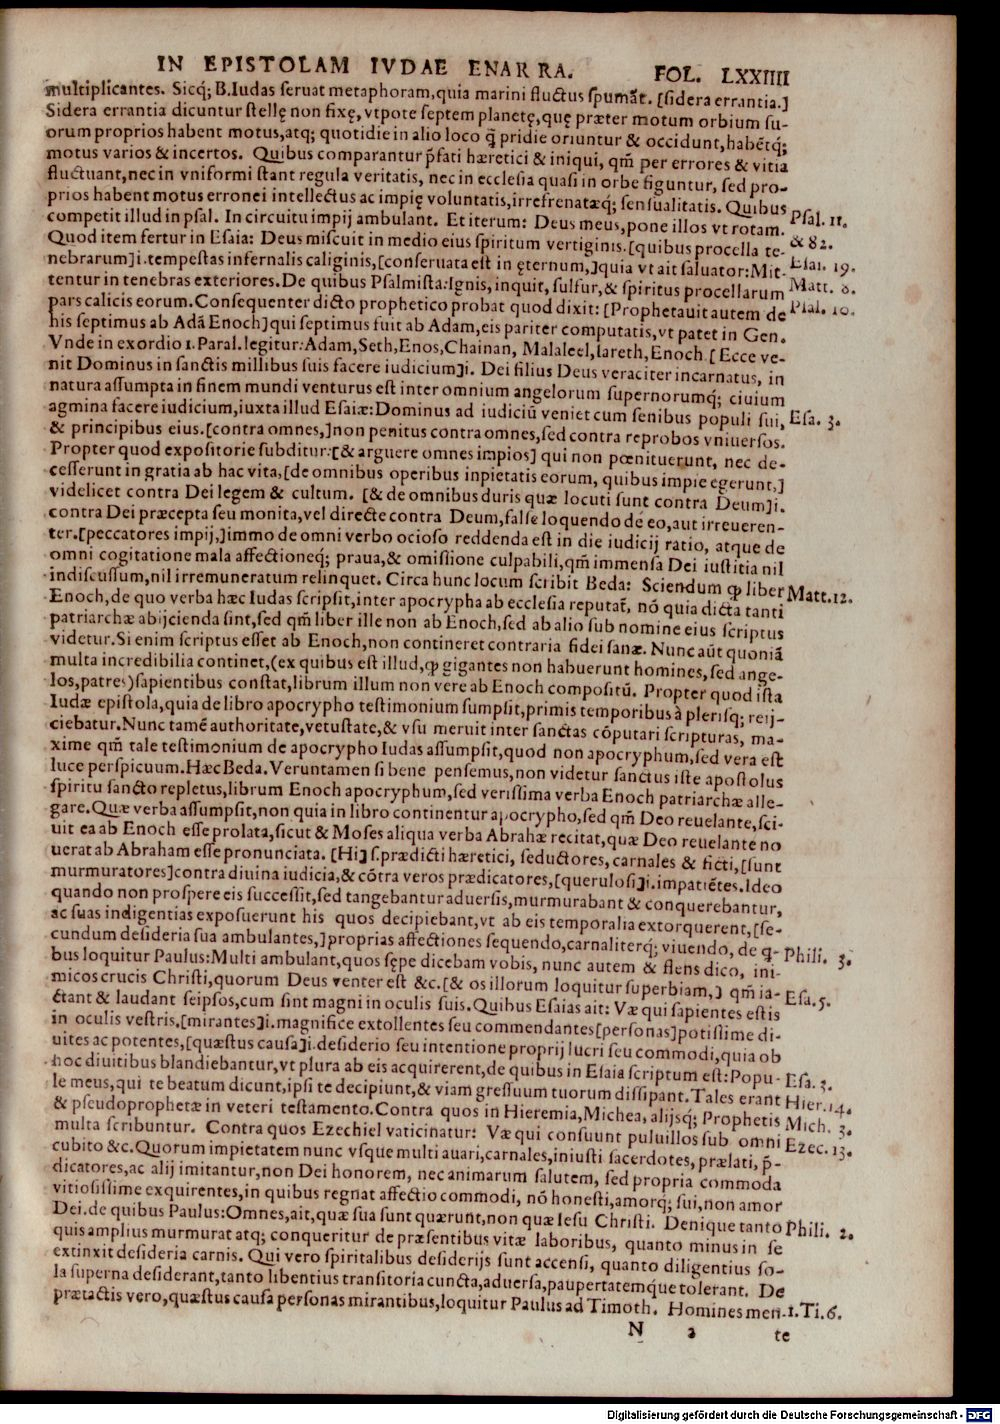 IN EPISTOLAM IVDAE ENARRA. FOL. LXXIIII
multiplicantes. Sicq; B.Iudas seruat metaphoram,quia marini fluctus spumãt. [sidera errantia.]
Sidera errantia dicuntur stellę non fixę, vtpote septem planetę,quę præter motum orbium su-
orum proprios habent motus,atq; quotidie in alio loco q̃ pridie oriuntur & occidunt,habẽtq;
motus varios & incertos. Quibus comparantur p̃fati hæretici & iniqui, qm̃ per errores & vitia
fluctuant,nec in vniformi stant regula veritatis, nec in ecclesia quasi in orbe figuntur, sed pro-
prios habent motus erronei intellectus ac impię voluntatis,irrefrenatæq; sensualitatis. Quibus
competit illud in psal. In circuitu impij ambulant. Et iterum: Deus meus,pone illos vt rotam. Psal. 11.
Quod item fertur in Esaia: Deus miscuit in medio eius spiritum vertiginis.[quibus procella te- & 82.
nebrarum]i.tempestas infernalis caliginis,[conseruata est in ęternum,]quia vt ait saluator:Mit- Esai. 19.
tentur in tenebras exteriores.De quibus Psalmista:Ignis, inquit, sulfur,& spiritus procellarum Matt. 8.
pars calicis eorum.Consequenter dicto prophetico probat quod dixit: [Prophetauit autem de Psal. 10.
his septimus ab Adã Enoch]qui septimus fuit ab Adam,eis pariter computatis,vt patet in Gen.
Vnde in exordio 1.Paral.legitur:Adam,Seth,Enos,Chainan, Malaleel,Iareth,Enoch.[Ecce ve-
nit Dominus in sanctis millibus suis facere iudicium]i. Dei filius Deus veraciter incarnatus, in
natura assumpta in finem mundi venturus est inter omnium angelorum supernorumq; ciuium
agmina facere iudicium,iuxta illud Esaiæ:Dominus ad iudiciũ veniet cum senibus populi sui, Esa. 3.
& principibus eius.[contra omnes,]non penitus contra omnes,sed contra reprobos vniuersos.
Propter quod expositorie subditur:[& arguere omnes impios] qui non pœnituerunt, nec de-
cesserunt in gratia ab hac vita,[de omnibus operibus inpietatis eorum, quibus impie egerunt,]
videlicet contra Dei legem & cultum. [& de omnibus duris quæ locuti sunt contra Deum]i.
contra Dei præcepta seu monita,vel directe contra Deum,false loquendo de eo,aut irreueren-
ter.[peccatores impij,]immo de omni verbo ocioso reddenda est in die iudicij ratio, atque de
omni cogitatione mala affectioneq; praua,& omissione culpabili,qm̃ immensa Dei iustitia nil
indiscussum,nil irremuneratum relinquet. Circa hunc locum scribit Beda: Sciendum ꝙ liber Matt.12.
Enoch,de quo verba hæc Iudas scripsit,inter apocrypha ab ecclesia reputat̃, nõ quia dicta tanti
patriarchæ abijcienda sint,sed qm̃ liber ille non ab Enoch,sed ab alio sub nomine eius scriptus
videtur.Si enim scriptus esset ab Enoch,non contineret contraria fidei sanæ. Nunc aũt quoniã
multa incredibilia continet,(ex quibus est illud,ꝙ gigantes non habuerunt homines, sed ange-
los,patres)sapientibus constat,librum illum non vere ab Enoch compositũ. Propter quod ista
Iudæ epistola,quia de libro apocrypho testimonium sumpsit,primis temporibus à plerisq; reij-
ciebatur.Nunc tamẽ authoritate,vetustate,& vsu meruit inter sanctas cõputari scripturas, ma-
xime qm̃ tale testimonium de apocrypho Iudas assumpsit,quod non apocryphum,sed vera est
luce perspicuum.Hæc Beda.Veruntamen si bene pensemus,non videtur sanctus iste apostolus
spiritu sancto repletus,librum Enoch apocryphum,sed verissima verba Enoch patriarchæ alle-
gare.Quæ verba assumpsit,non quia in libro continentur apocrypho,sed qm̃ Deo reuelante,sci-
uit ea ab Enoch esse prolata,sicut & Moses aliqua verba Abrahæ recitat,quæ Deo reuelante no
uerat ab Abraham esse pronunciata. [Hi] s.prædicti hæretici, seductores, carnales & ficti, [sunt
murmuratores]contra diuina iudicia,& cõtra veros prædicatores,[querulosi]i.impatiẽtes.Ideo
quando non prospere eis successit,sed tangebantur aduersis,murmurabant & conquerebantur,
ac suas indigentias exposuerunt his quos decipiebant,vt ab eis temporalia extorquerent,[se-
cundum desideria sua ambulantes,]proprias affectiones sequendo,carnaliterq; viuendo, de q-
bus loquitur Paulus:Multi ambulant,quos sępe dicebam vobis, nunc autem & flens dico, ini- Phili. 3.
micos crucis Christi,quorum Deus venter est &c.[& os illorum loquitur superbiam,] qm̃ ia-
ctant & laudant seipsos,cum sint magni in oculis suis.Quibus Esaias ait: Væ qui sapientes estis Esa. 5.
in oculis vestris.[mirantes]i.magnifice extollentes seu commendantes[personas]potissime di-
uites ac potentes,[quæstus causa]i.desiderio seu intentione proprij lucri seu commodi,quia ob
hoc diuitibus blandiebantur,vt plura ab eis acquirerent,de quibus in Esaia scriptum est:Popu-
le meus,qui te beatum dicunt,ipsi te decipiunt,& viam gressuum tuorum dissipant.Tales erant Esa. 3.
& pseudoprophetæ in veteri testamento.Contra quos in Hieremia,Michea,alijsq; Prophetis Hier.14.
multa scribuntur. Contra quos Ezechiel vaticinatur: Væ qui consuunt puluillos sub omni Mich. 3.
cubito &c.Quorum impietatem nunc vsque multi auari,carnales,iniusti sacerdotes,prælati,p̃- Ezec. 13.
dicatores,ac alij imitantur,non Dei honorem, nec animarum salutem, sed propria commoda
vitiosissime exquirentes,in quibus regnat affectio commodi, nõ honesti,amorq; sui,non amor
Dei.de quibus Paulus:Omnes,ait,quæ sua sunt quærunt,non quæ Iesu Christi. Denique tanto Phili. 2.
quis amplius murmurat atq; conqueritur de præsentibus vitæ laboribus, quanto minus in se
extinxit desideria carnis. Qui vero spiritalibus desiderijs sunt accensi, quanto diligentius so-
la superna desiderant,tanto libentius transitoria cuncta,aduersa,paupertatemque tolerant. De
prætactis vero,quæstus causa personas mirantibus,loquitur Paulus ad Timoth. Homines men- 1.Ti.6.
N 2 te
Digitalisierung gefördert durch die Deutsche Forschungsgemeinschaft - DFG